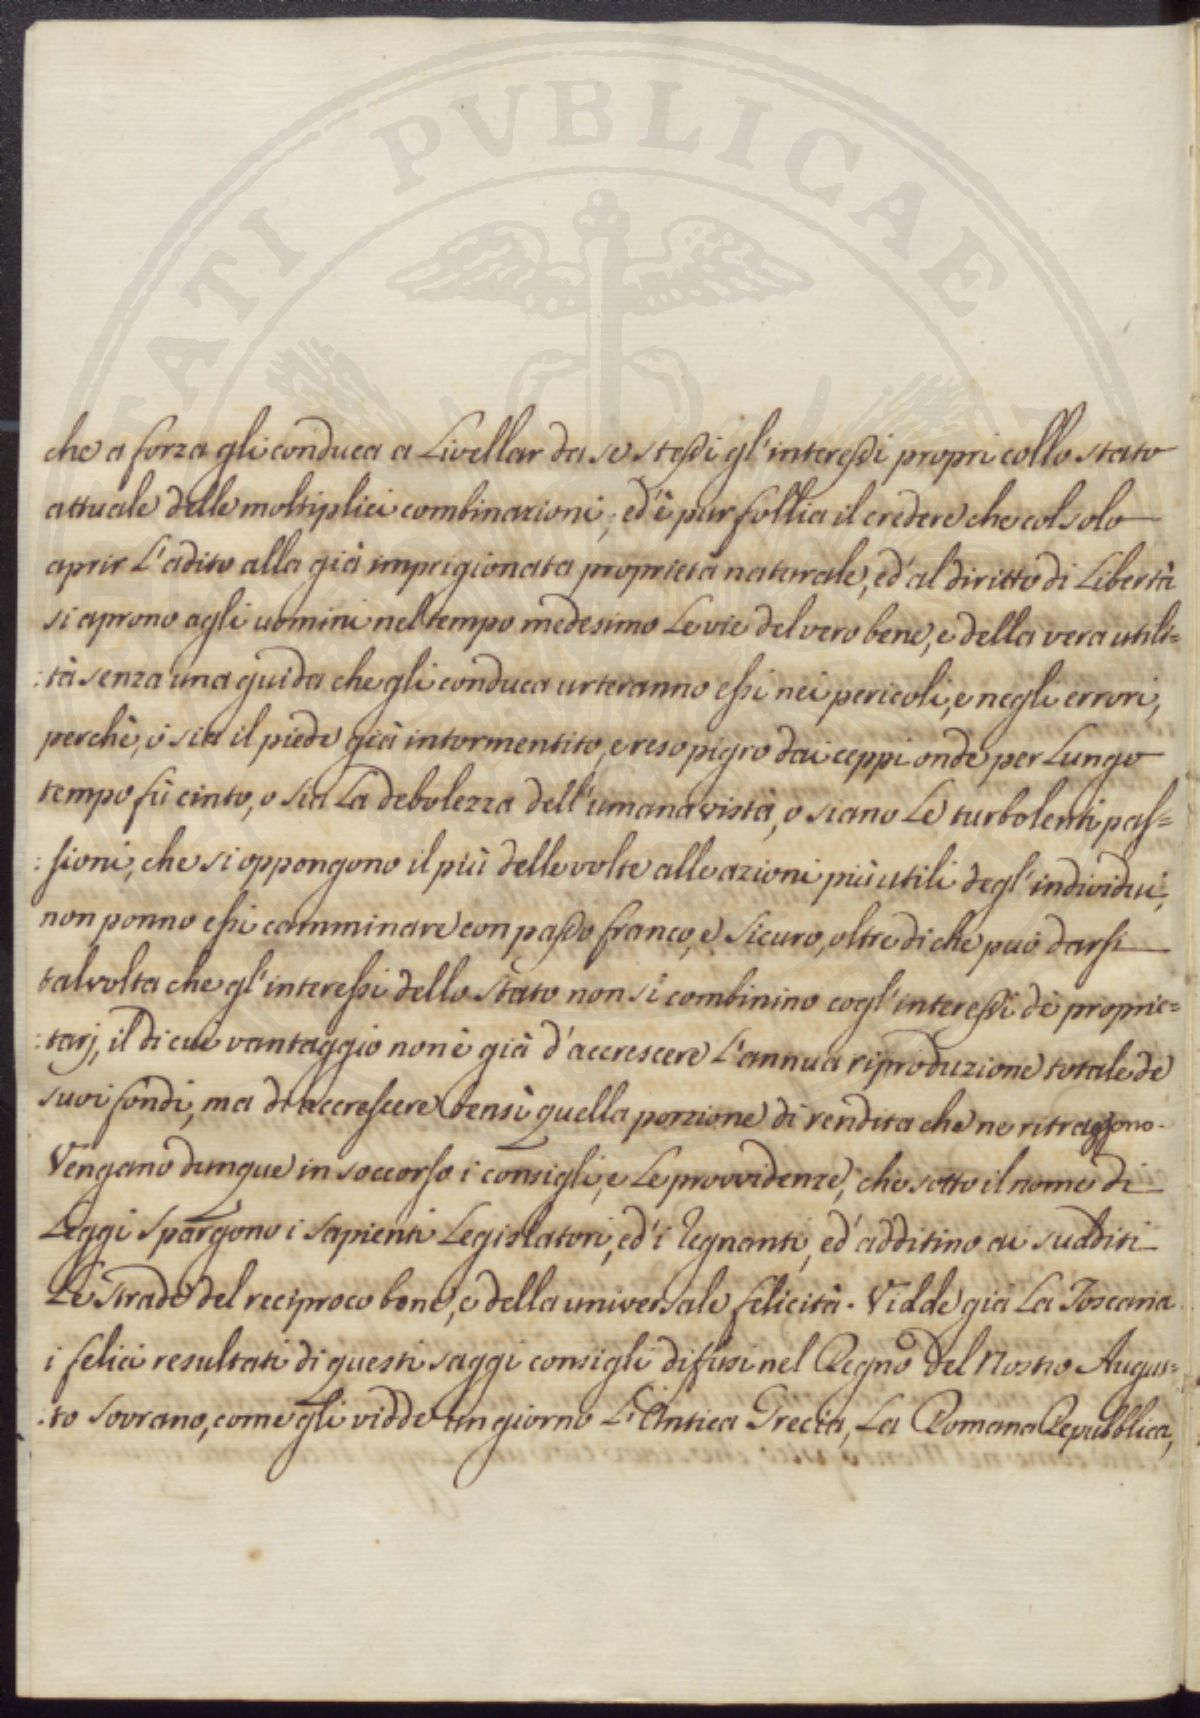 PUBLICAE
che a forza gli conduca a Livellar da se stessi gl'interessi propri collo stato
attuale delle moltiplici combinazioni; ed'è pur follia il credere che col solo
aprir L'adito alla già imprigionata proprietà naturale, ed'al diritto di Libertà
si aprono agli uomini nel tempo medesimo Le vie del vero bene, e della vera utili=
:tà senza una guida che gli conduca urteranno essi nei pericoli, e negli errori,
perchè, ò sia il piede già intormentito, e reso pigro dai ceppi onde per Lungo
tempo fù cinto, o sia La debolezza dell'umana vista, o siano Le turbolenti pas=
:sioni, che si oppongono il più delle volte alle azioni più utili degl'individui,
non ponno essi camminare con passo franco, e Sicuro, oltre di che può darsi
talvolta che gl'interessi dello Stato non si combinino cogl'interessi de proprie=
:tarj, il di cui vantaggio non è già d'accrescere L'annua riproduzione totale de
suoi fondi, ma di accrescere bensì quella porzione di rendita che ne ritraggono.
Vengano dunque in soccorso i consigli, e Le provvidenze, che sotto il nome di
Leggi Spargono i sapienti Legislatori, ed'i Regnanti, ed'additino ai sudditi
Le Strade del reciproco bene, e della universale felicità. Vidde già La Toscana
i felici resultati di questi saggi consigli difusi nel Regno del Nostro Augus=
:to Sovrano, come gli vidde un giorno L'Antica Grecia, La Romana Repubblica,